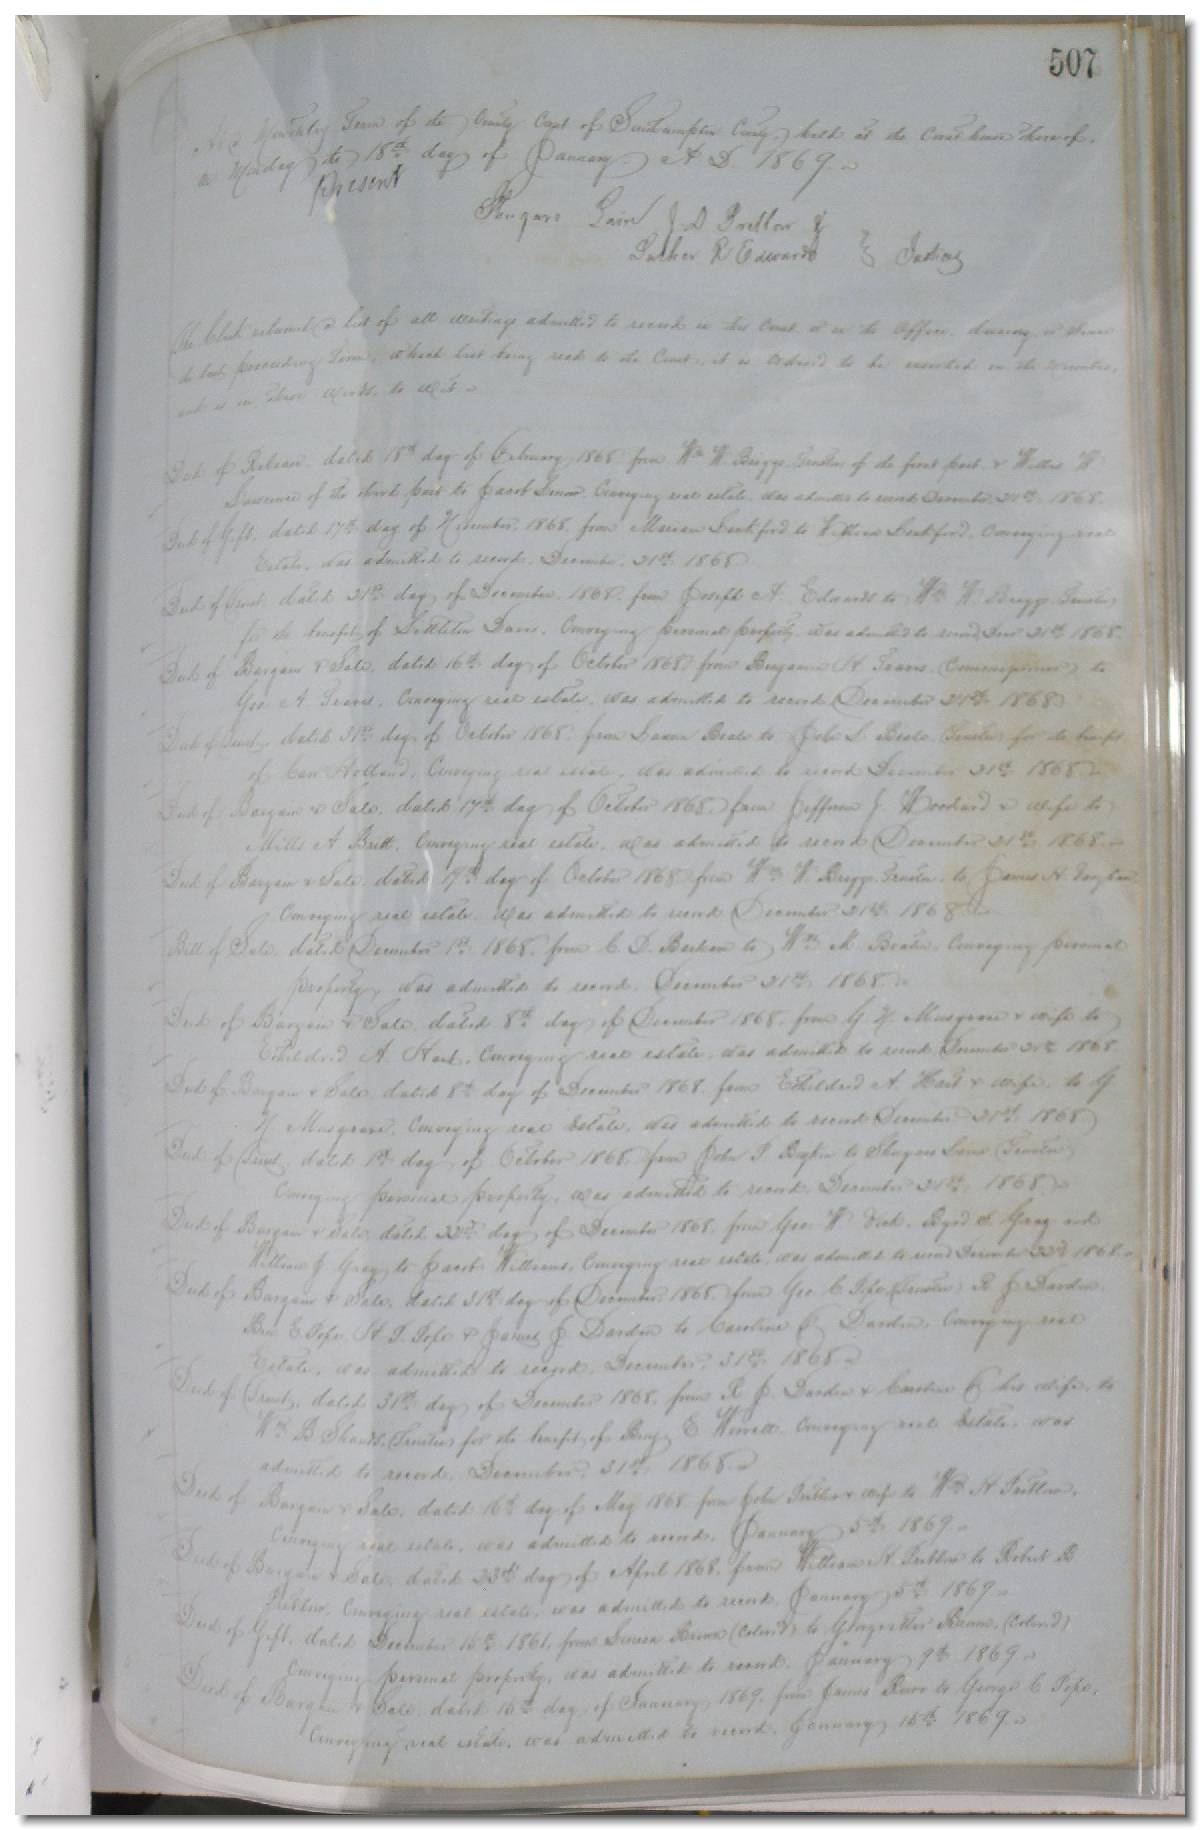 507
Monthly Term of the County Court of Southampton County, held at the Court house thereof,
on Monday the 18th day of January A D. 1869.
Present
Lain J. D Pretlow &
R Edwards } Justices
The Clerk returned a list of all writings admitted to record in this Court or in the Office, during or since
the last preceeding Term, which list being read to the Court, it is ordered to be inserted in the minutes,
and is in these words, to wit
Deed of Release, dated 18th day of February 1868 from Wm W Briggs Trustee of the first part, & Willis W
Lawrence of the third part to Jacob Conveying real estate, was admitted to record December 21st 1868.
Deed of Gift, dated 17th day of November, 1868, from to William Conveying real
Estate, was admitted to record, December 21st 1868
Deed of Trust, dated 21st day of December, 1868, from Joseph A. Edwards to Wm W. Briggs Trustee
for the benefit of Littleton Davis, Conveying personal property, was admitted to record 21st 1868.
Deed of Bargain & Sale, dated 16th day of October 1868 from Benjamin H. Travis (Commissioner) to
Geo A. Travis, Conveying real estate, was admitted to record December 21st 1868
Deed of Trust, dated 31st day of October 1868 from Beale to John Beale Trustee for the benefit
of Holland, Conveying real estate, was admitted to record December 21st 1868.
Deed of Bargain & Sale, dated 17th day of October 1868, from Jefferson J. Woodard & wife to
Mills A Britt, Conveying real estate, was admitted to record December 21st 1868.
Deed of Bargain & Sale, dated 19th day of October 1868 from Wm W. Briggs Trustee, to James H. Vaughan
Conveying real estate, was admitted to record December 21st 1868
Bill of Sale, dated December 1st 1868, from C. D. Barham to Wm M. Conveying personal
property, was admitted to record, December 21st 1868.
Deed of Bargain & Sale, dated 8th day of December 1868, from G Musgrave & wife to
Etheldred A. Hart, Conveying real estate, was admitted to record December 21st 1868.
Deed of Bargain & Sale, dated 8th day of December 1868, from Etheldred A. Hart & wife, to G
Musgrave, Conveying real Estate, was admitted to record December 21st 1868
Deed of Trust, dated 1st day of October 1868, from John to Lain (Trustee)
Conveying personal property, was admitted to record, December 21st 1868.
Deed of Bargain & Sale, dated 22nd day of December 1868, from Geo. W Gray and
William J Gray to Jacob Williams, Conveying real estate, was admitted to record December 22nd 1868.
Deed of Bargain & Sale, dated 31st day of December, 1868, from Geo. C Pope (Trustee) R J Darden,
Ben E Pope, Pope & James J Darden to Caroline Darden, Conveying real
Estate, was admitted to record, December 31st 1868
Deed of Trust, dated 31st day of December 1868, from R J. Darden & Caroline his wife, to
Wm B Shands, (Trustee) for the benefit of Benj. E Conveying real Estate, was
admitted to record, December, 31st 1868
Deed of Bargain & Sale, dated 16th day of May 1868 from John Pretlow & wife to Wm H Pretlow,
Conveying real estate, was admitted to record, January 5th 1869.
Deed of Bargain & Sale, dated 23rd day of April 1868, from William H. Pretlow to Robert B
Pretlow, Conveying real estate, was admitted to record, January 5th 1869
Deed of Gift, dated December 15th 1861, from Brown (Colored) to Brown, (Colored)
Conveying personal property, was admitted to record, January 9th 1869
Deed of Bargain & Sale, dated 15th day of January 1869, from James to George C Pope,
Conveying real estate, was admitted to record, January 15th 1869